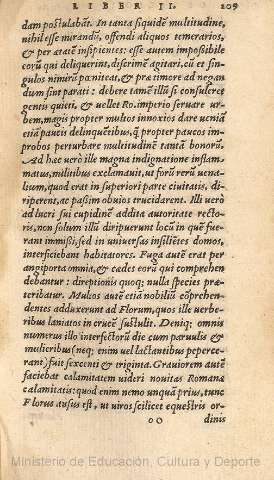 LIBER II. 209
dam postulabāt. In tanta siquidē multitudine,
nihil esse mirandū, offendi aliquos temerarios,
& per ætatē insipientes: esse autem impossibile
eorū qui deliquerint, discrimē agitari, cū et sin-
gulos nimirū pœniteat, & præ timore ad negan
dum sint parati: debere tamē illū si consulere
genti quieti, & uellet Ro. imperio seruare ur-
bem, magis propter multos innoxios dare ueniā
etiā paucis delinquētibus, q̄ propter paucos im-
probos perturbare multitudinē tantā bonorū.
Ad hæc uerò ille magna indignatione inflam-
matus, militibus exclamauit, ut forū rerū uena-
lium, quod erat in superiori parte ciuitatis, di-
riperent, ac passim obuios trucidarent. Illi uerò
ad lucri sui cupidinē addita autoritate recto-
ris, non solum illū diripuerunt locū in quē fue-
rant immissi, sed in uniuersas insiliētes domos,
interficiebant habitatores. Fuga autē erat per
angiporta omnia, & cædes eorū qui comprehen
debantur: direptionis quoq; nulla species præ-
teribatur. Multos autē etiā nobiliū cōprehen-
dentes adduxerunt ad Florum, quos ille uerbe-
ribus laniatos in crucē sustulit. Deniq; omnis
numerus illo interfectorū die cum paruulis &
mulieribus (neq; enim uel lactantibus peperce-
rant) fuit sexcenti & triginta. Grauiorem autē
faciebat calamitatem uideri nouitas Romanæ
calamitatis: quod enim nemo unquā prius, tunc
Florus ausus est, ut uiros scilicet equestris or-
oo dinis
Ministerio de Educación, Cultura y Deporte